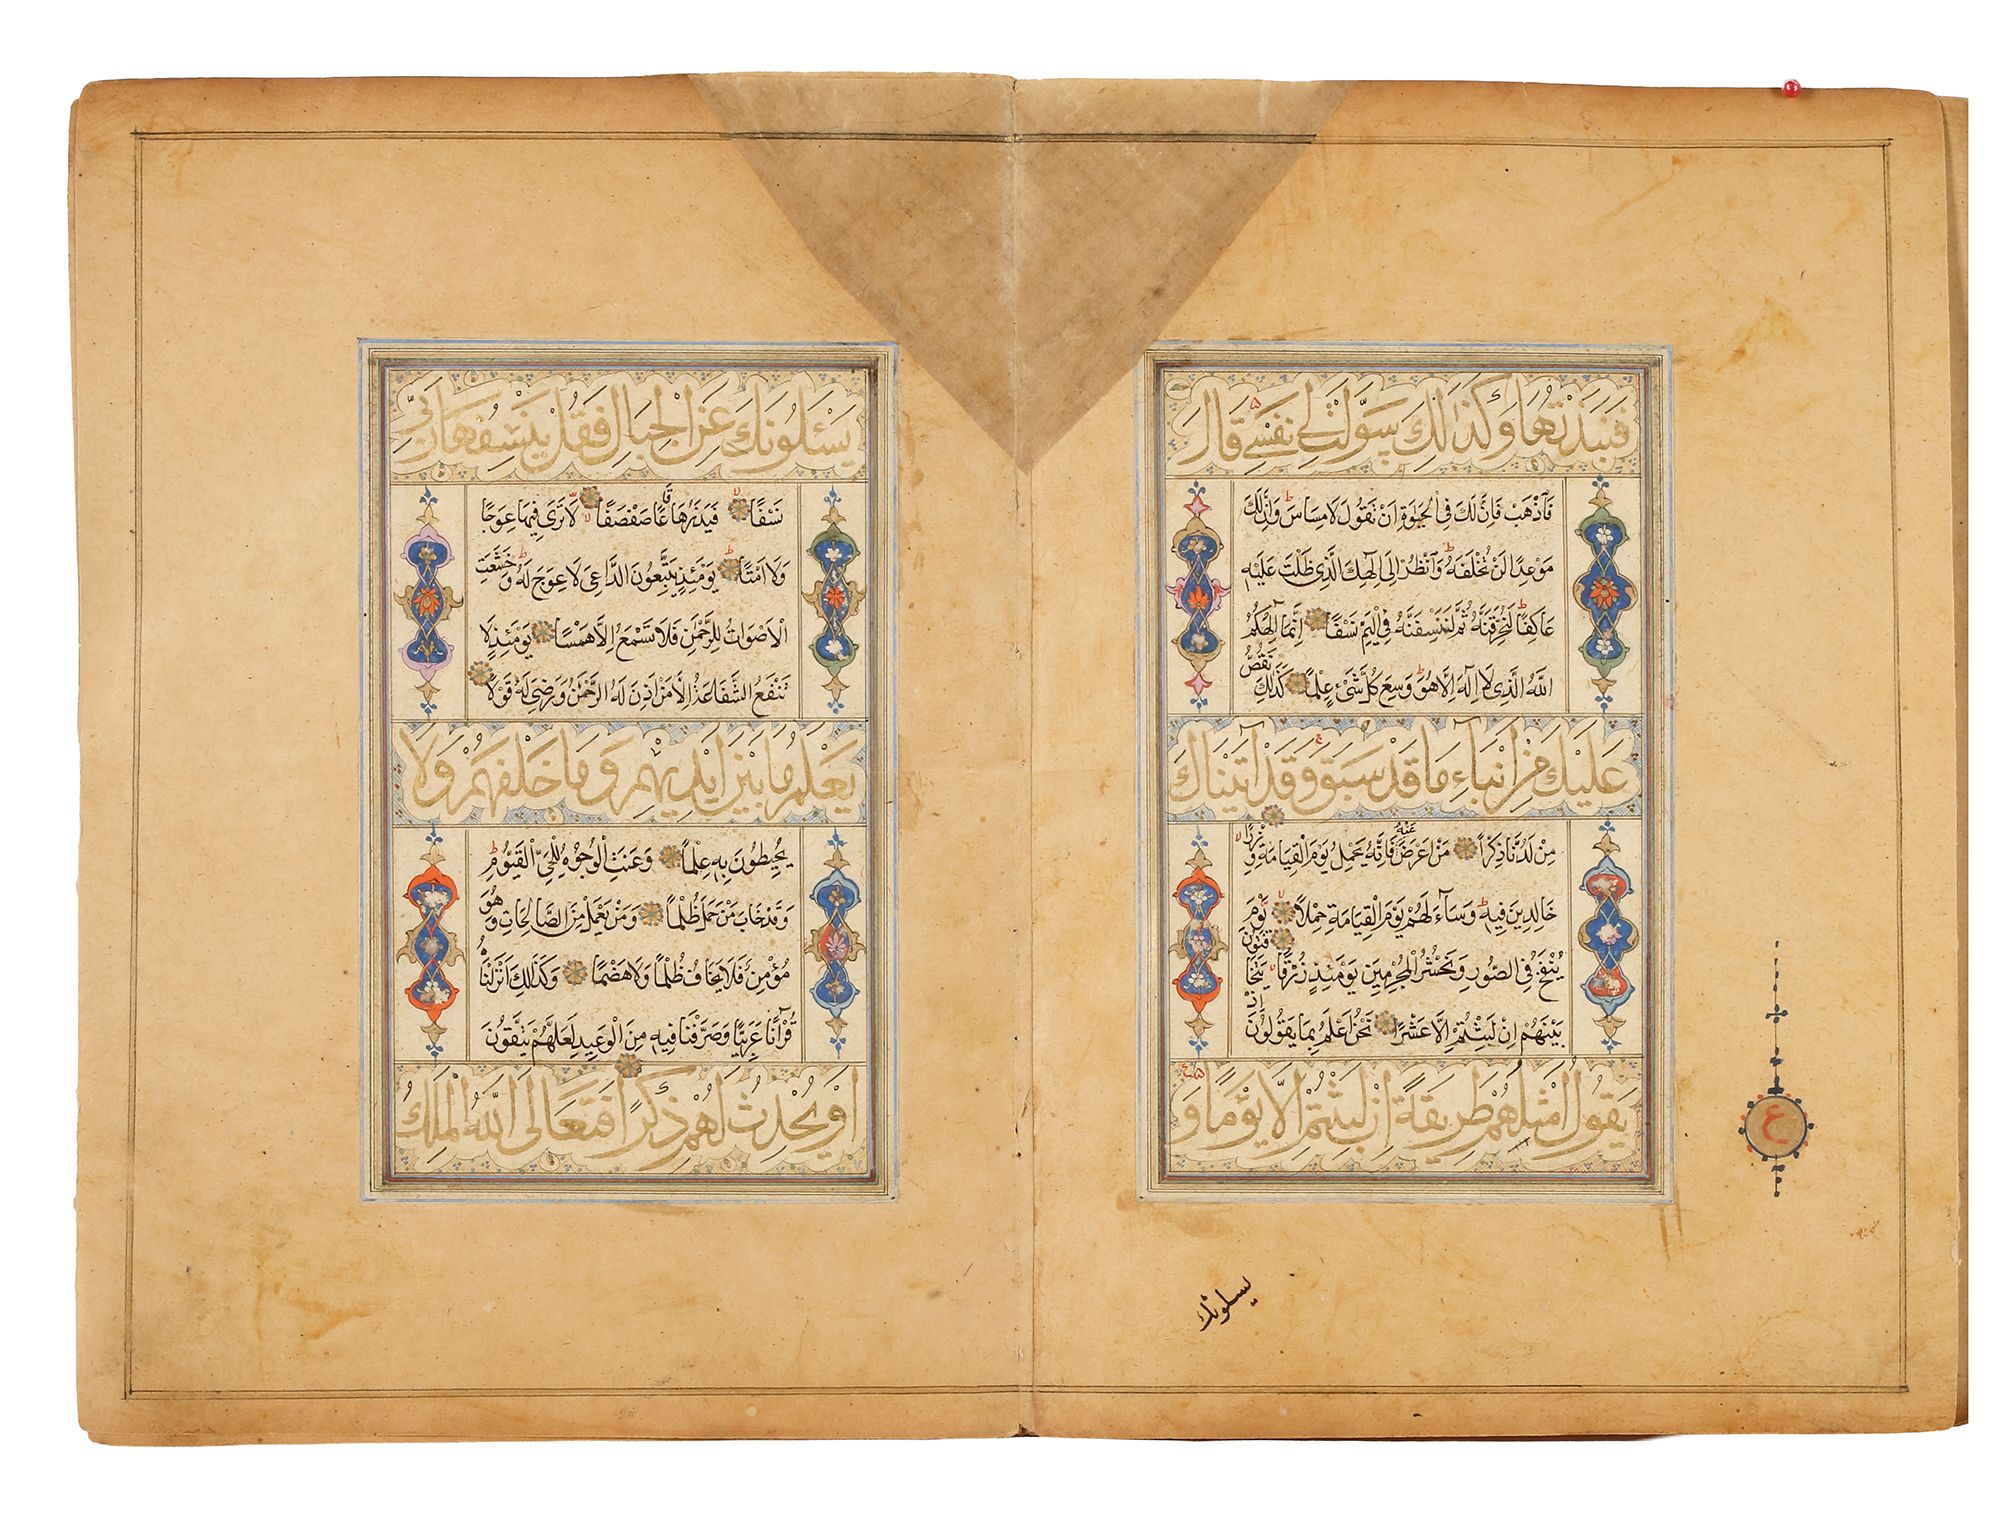 فَنَبَذْتُهَا وَكَذَٰلِكَ سَوَّلَتْ لِي نَفْسِي قَالَ
فَاذْهَبْ فَاِنَّ لَكَ فِي الْحَيٰوةِ اَنْ تَقُولَ لَا مِسَاسَ وَاِنَّ لَكَ
مَوْعِدًا لَنْ تُخْلَفَهُ وَانْظُرْ اِلٰى اِلٰهِكَ الَّذِي ظَلْتَ عَلَيْهِ
عَاكِفًا لَنُحَرِّقَنَّهُ ثُمَّ لَنَنْسِفَنَّهُ فِي الْيَمِّ نَسْفًا اِنَّمَا اِلٰهُكُمُ
اللّٰهُ الَّذِي لَا اِلٰهَ اِلَّا هُوَ وَسِعَ كُلَّ شَيْءٍ عِلْمًا كَذٰلِكَ نَقُصُّ
عَلَيْكَ مِنْ اَنْبَاءِ مَا قَدْ سَبَقَ وَقَدْ اٰتَيْنَاكَ
مِنْ لَدُنَّا ذِكْرًا مَنْ اَعْرَضَ عَنْهُ فَاِنَّهُ يَحْمِلُ يَوْمَ الْقِيَامَةِ وِزْرًا
خَالِدِينَ فِيهِ وَسَاءَ لَهُمْ يَوْمَ الْقِيَامَةِ حِمْلًا يَوْمَ
يُنْفَخُ فِي الصُّورِ وَنَحْشُرُ الْمُجْرِمِينَ يَوْمَئِذٍ زُرْقًا يَتَخَافَتُونَ
بَيْنَهُمْ اِنْ لَبِثْتُمْ اِلَّا عَشْرًا نَحْنُ اَعْلَمُ بِمَا يَقُولُونَ اِذْ
يَقُولُ اَمْثَلُهُمْ طَرِيقَةً اِنْ لَبِثْتُمْ اِلَّا يَوْمًا وَ
ع
يسلونك
يَسْئَلُونَكَ عَنِ الْجِبَالِ فَقُلْ يَنْسِفُهَا رَبِّي
نَسْفًا فَيَذَرُهَا قَاعًا صَفْصَفًا لَا تَرٰى فِيهَا عِوَجًا
وَلَا اَمْتًا يَوْمَئِذٍ يَتَّبِعُونَ الدَّاعِيَ لَا عِوَجَ لَهُ وَخَشَعَتِ
الْاَصْوَاتُ لِلرَّحْمٰنِ فَلَا تَسْمَعُ اِلَّا هَمْسًا يَوْمَئِذٍ لَا
تَنْفَعُ الشَّفَاعَةُ اِلَّا مَنْ اَذِنَ لَهُ الرَّحْمٰنُ وَرَضِيَ لَهُ قَوْلًا
يَعْلَمُ مَا بَيْنَ اَيْدِيهِمْ وَمَا خَلْفَهُمْ وَلَا
يُحِيطُونَ بِهِ عِلْمًا وَعَنَتِ الْوُجُوهُ لِلْحَيِّ الْقَيُّومِ
وَقَدْ خَابَ مَنْ حَمَلَ ظُلْمًا وَمَنْ يَعْمَلْ مِنَ الصَّالِحَاتِ وَهُوَ
مُؤْمِنٌ فَلَا يَخَافُ ظُلْمًا وَلَا هَضْمًا وَكَذٰلِكَ اَنْزَلْنَاهُ
قُرْاٰنًا عَرَبِيًّا وَصَرَّفْنَا فِيهِ مِنَ الْوَعِيدِ لَعَلَّهُمْ يَتَّقُونَ
اَوْ يُحْدِثُ لَهُمْ ذِكْرًا فَتَعَالَى اللّٰهُ الْمَلِكُ